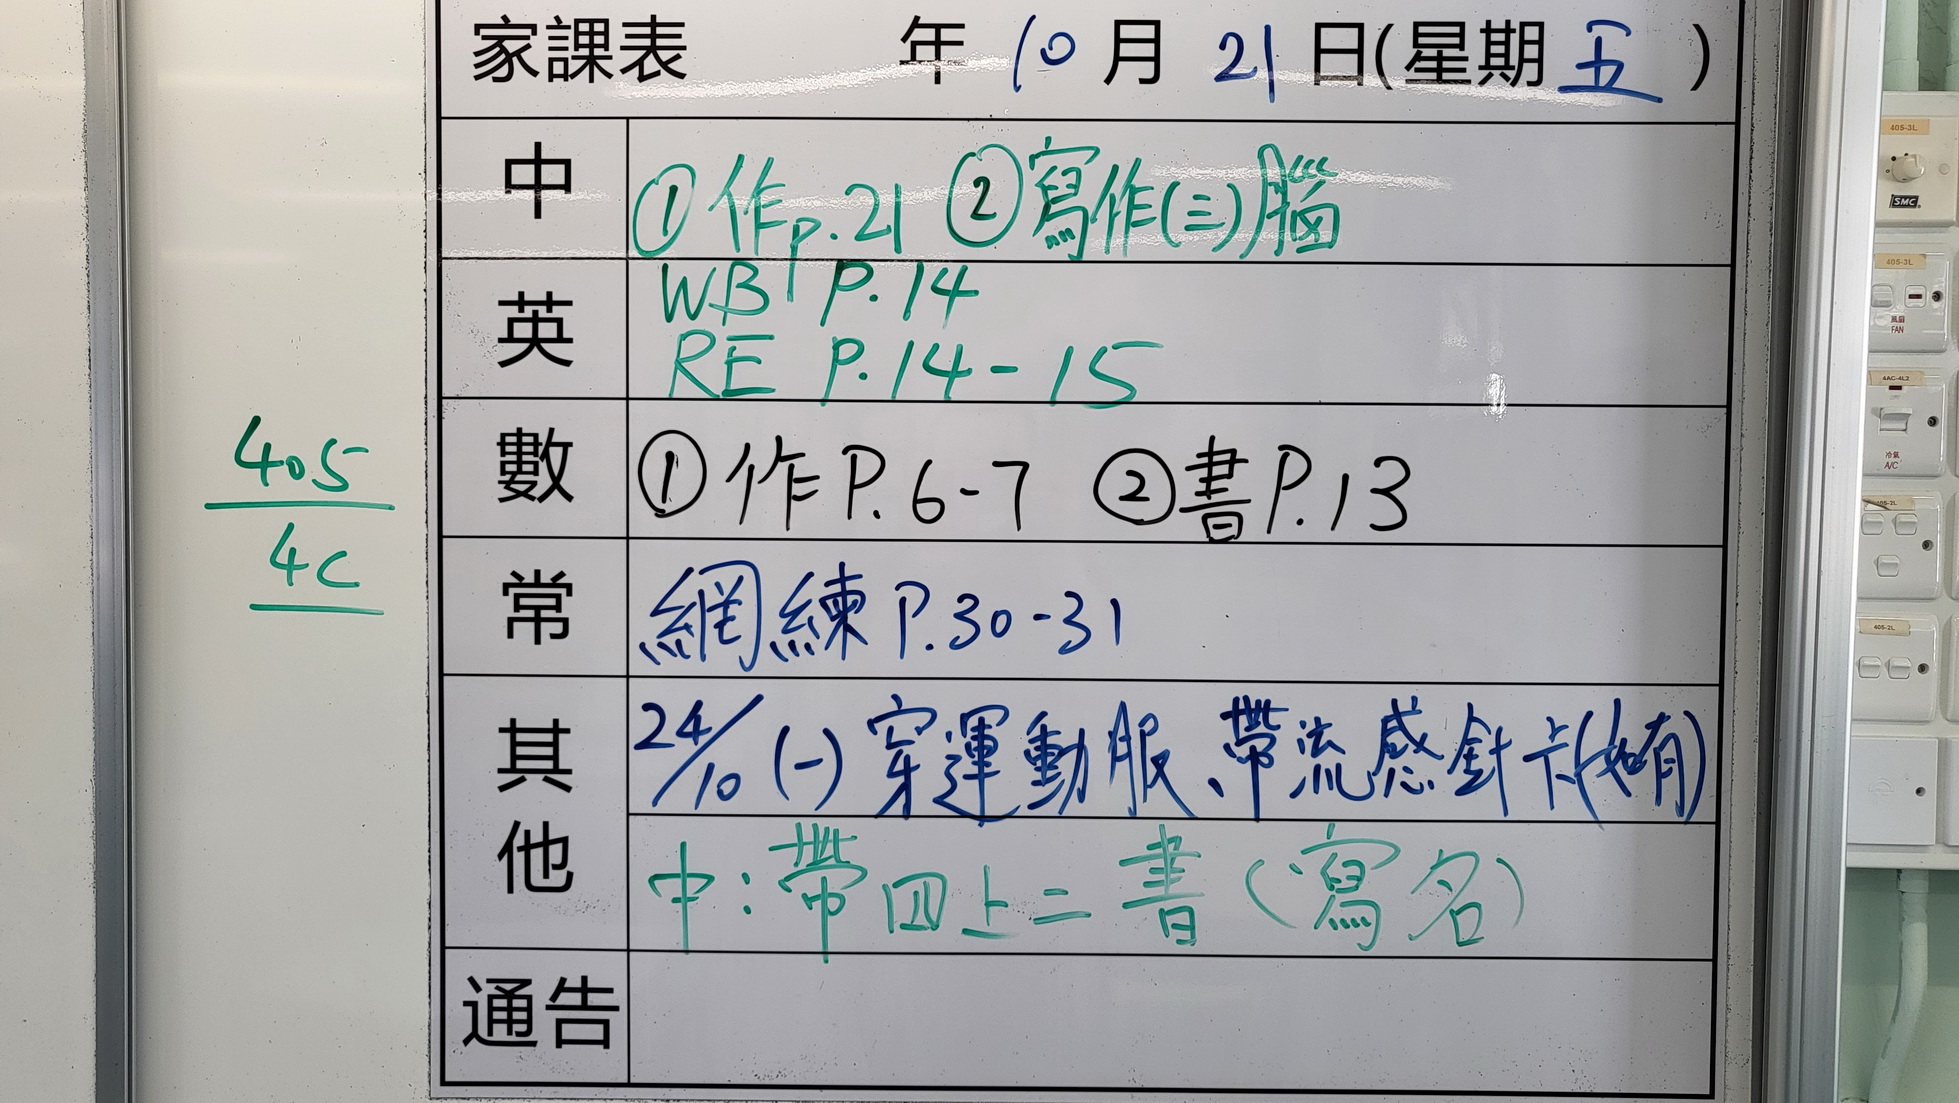 家課表 年 10 月 21 日(星期 五 )
中 ①作p.21 ②寫作(三)腦
英 WB P.14
RE P.14-15
數 ①作P.6-7 ②書P.13
常 網練P.30-31
其他 24/10 (一) 穿運動服、帶流感針卡(如有)
中：帶四上二書(寫名)
通告
405
4C
405-3L
SMC
405-3L
風扇
FAN
4AC-4L2
冷氣
A/C
405-2L